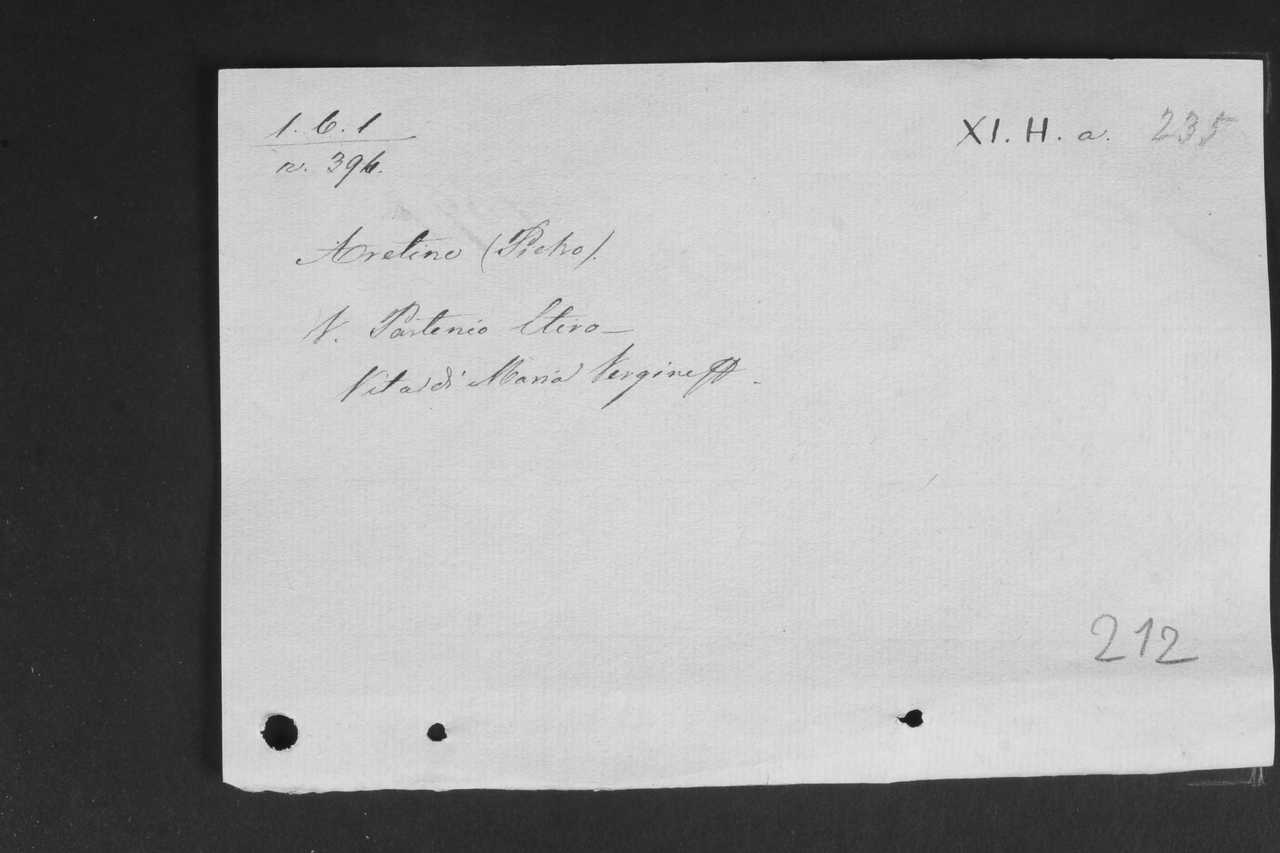 1. 6. 1
n. 396.
XI. H. a. 235
Aretino (Pietro).
V. Partenio Etiro —
Vita di Maria Vergine
212